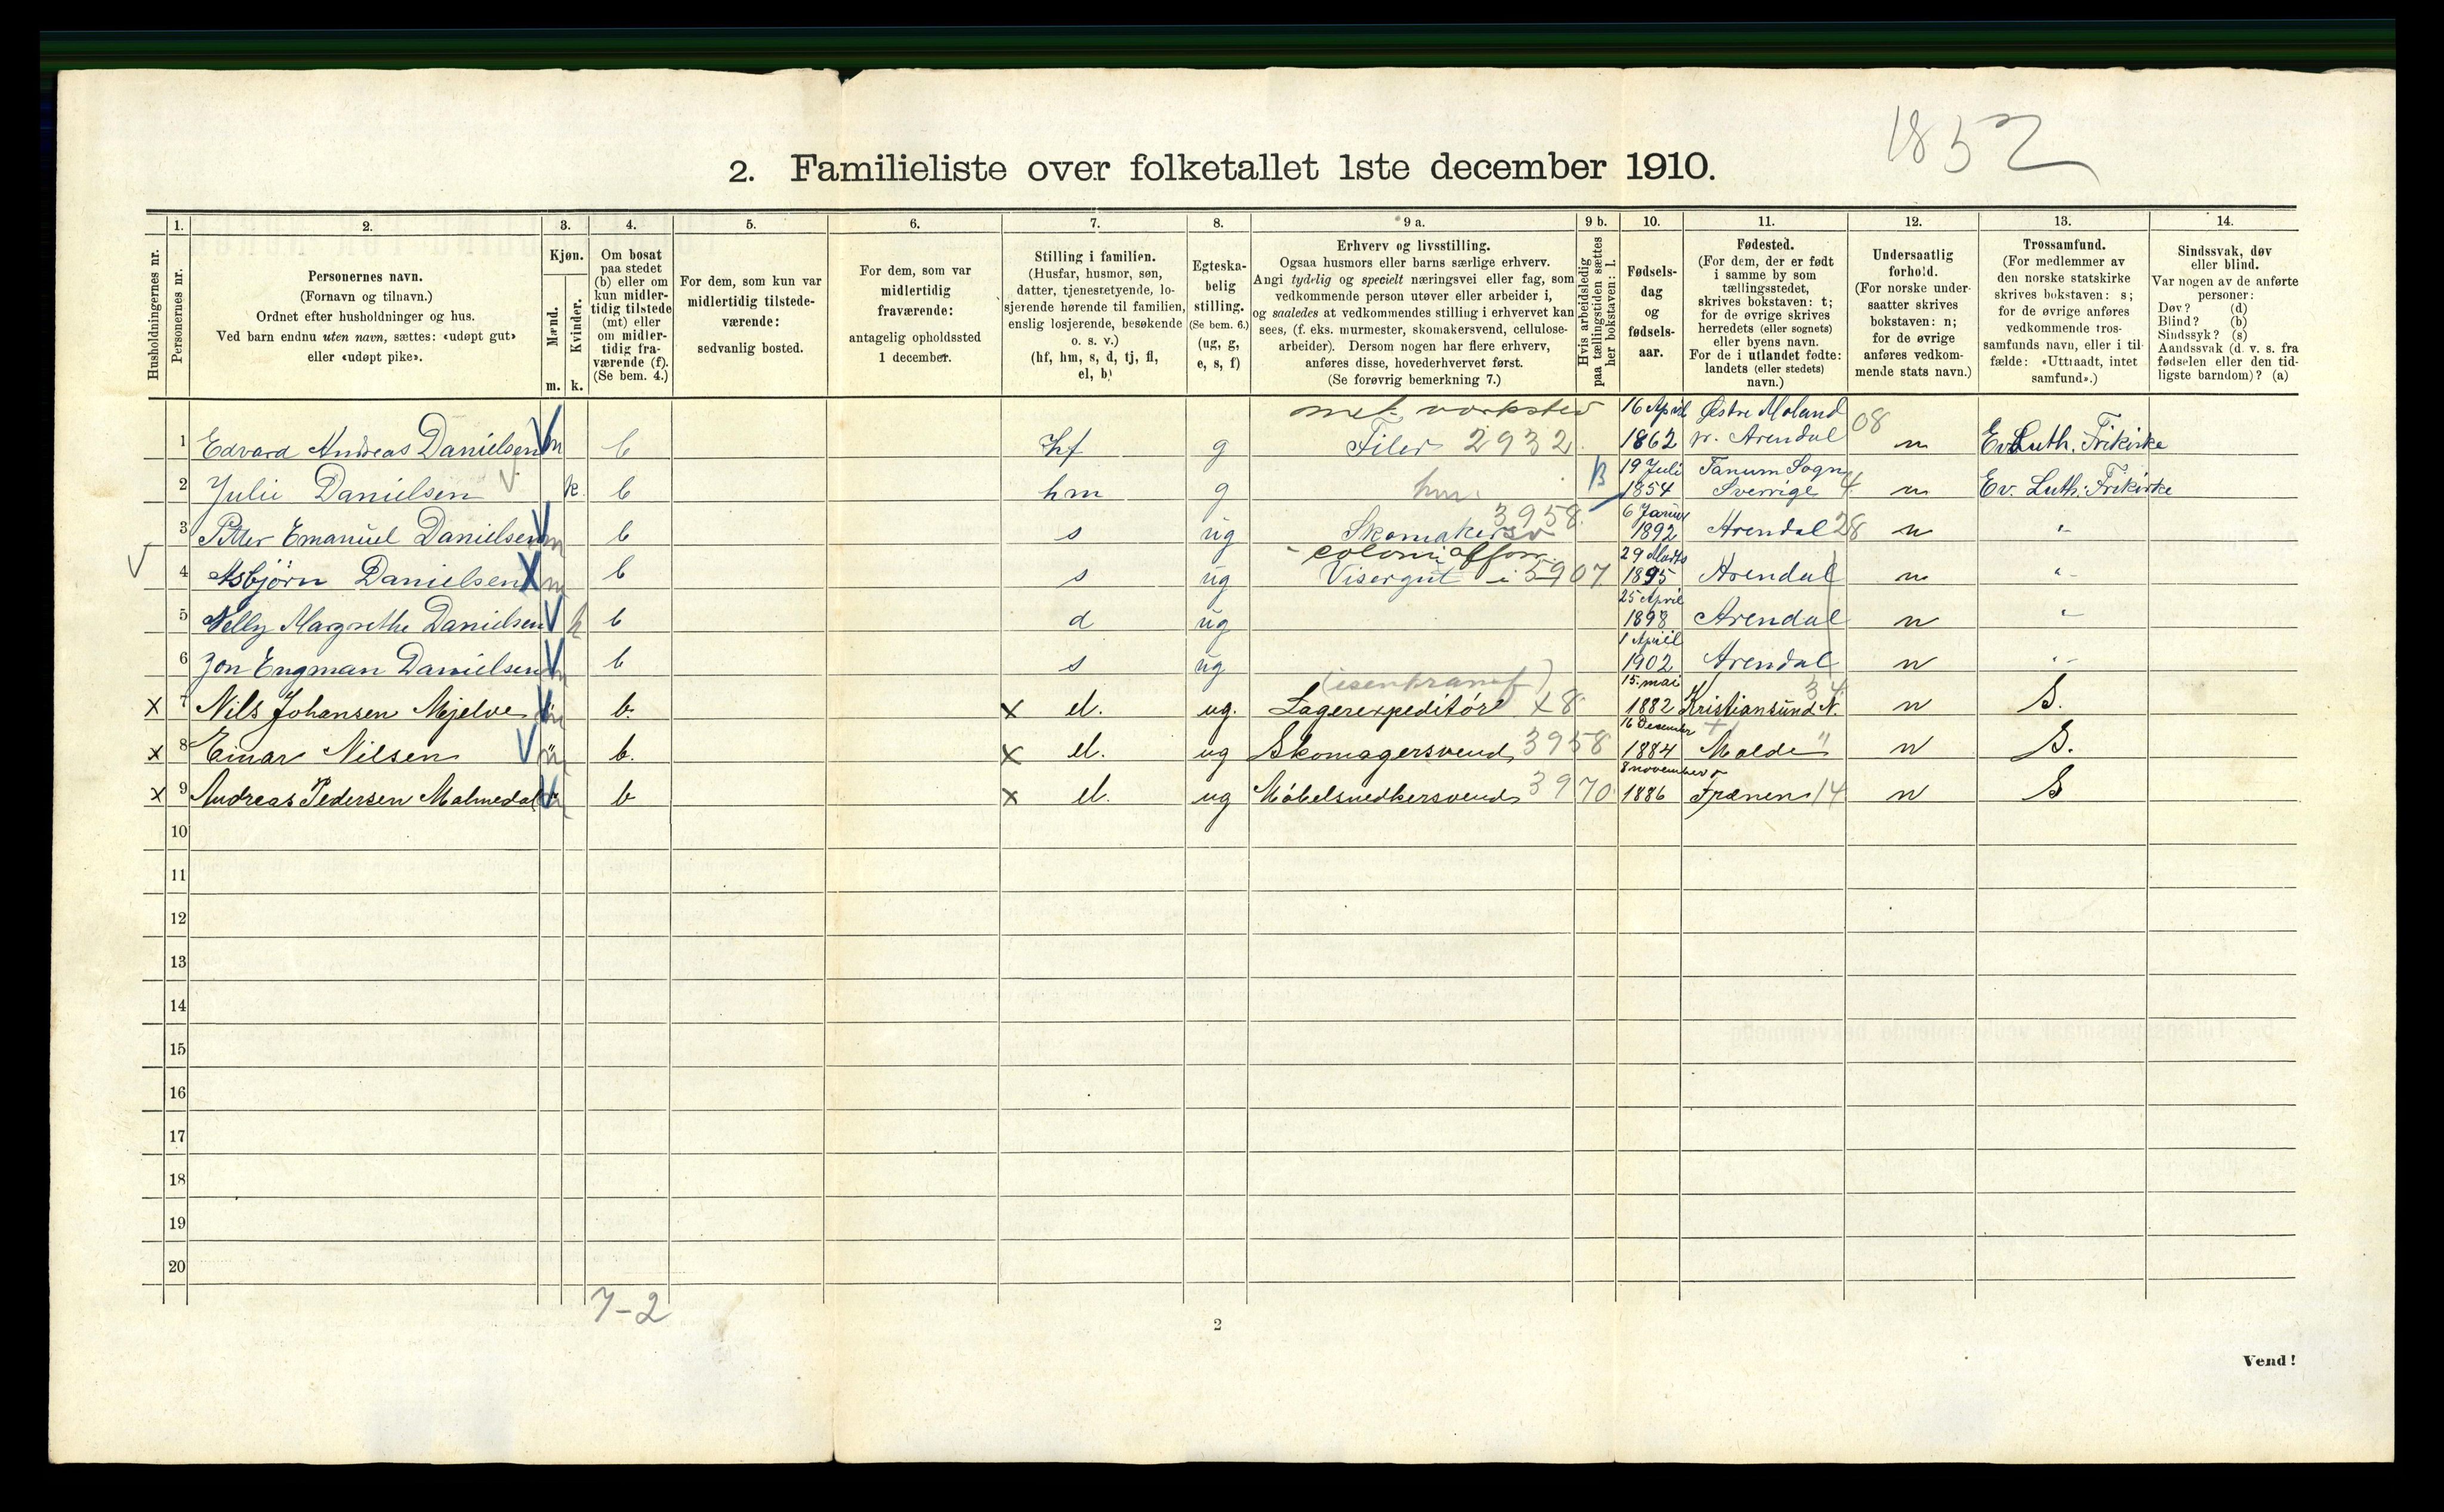 1852
2. Familieliste over folketallet 1ste december 1910.
1. 2. 3. 4. 5. 6. 7. 8. 9 a. 9 b. 10. 11. 12. 13. 14.
Husholdningernes nr.
Personernes nr.
Personernes navn.
(Fornavn og tilnavn.)
Ordnet efter husholdninger og hus.
Ved barn endnu uten navn, sættes: «udøpt gut»
eller «udøpt pike».
Kjøn.
Mænd.
Kvinder.
m. k.
Om bosat
paa stedet
(b) eller om
kun midler-
tidig tilstede
(mt) eller
om midler-
tidig fra-
værende (f).
(Se bem. 4.)
For dem, som kun var
midlertidig tilstede-
værende:
sedvanlig bosted.
For dem, som var
midlertidig
fraværende:
antagelig opholdssted
1 december.
Stilling i familien.
(Husfar, husmor, søn,
datter, tjenestetyende, lo-
sjerende hørende til familien,
enslig losjerende, besøkende
o. s. v.)
(hf, hm, s, d, tj, fl,
el, b)
Egteska-
belig
stilling.
(Se bem. 6.)
(ug, g,
e, s, f)
Erhverv og livsstilling.
Ogsaa husmors eller barns særlige erhverv.
Angi tydelig og specielt næringsvei eller fag, som
vedkommende person utøver eller arbeider i,
og saaledes at vedkommendes stilling i erhvervet kan
sees, (f. eks. murmester, skomakersvend, cellulose-
arbeider). Dersom nogen har flere erhverv,
anføres disse, hovederhvervet først.
(Se forøvrig bemerkning 7.)
Hvis arbeidsledig
paa tællingstiden sættes
her bokstaven: l.
Fødsels-
dag
og
fødsels-
aar.
Fødested.
(For dem, der er født
i samme by som
tællingsstedet,
skrives bokstaven: t;
for de øvrige skrives
herredets (eller sognets)
eller byens navn.
For de i utlandet fødte:
landets (eller stedets)
navn.)
Undersaatlig
forhold.
(For norske under-
saatter skrives
bokstaven: n;
for de øvrige
anføres vedkom-
mende stats navn.)
Trossamfund.
(For medlemmer av
den norske statskirke
skrives bokstaven: s;
for de øvrige anføres
vedkommende tros-
samfunds navn, eller i til-
fælde: «Uttraadt, intet
samfund».)
Sindssvak, døv
eller blind.
Var nogen av de anførte
personer:
Døv? (d)
Blind? (b)
Sindssyk? (s)
Aandssvak (d. v. s. fra
fødselen eller den tid-
ligste barndom)? (a)
mek. verksted 16 April Østre Moland
1 Edvard Andreas Danielsen m b hf g Filer 2932 1862 pr. Arendal 08 n Ev. Luth. Frikirke
19 Juli Tanum Sogn
2 Julie Danielsen k. b hm g hm. B 1854 Sverrige 4 n Ev. Luth. Frikirke
3958. 6 Januar
3 Petter Emanuel Danielsen m b s ug Skomakersv 1892 Arendal 28 n "
29 Marts
4 Asbjörn Danielsen m b s ug Visergut i 5907 1895 Arendal n "
25 April
5 Nelly Margrethe Danielsen k b d ug 1898 Arendal n "
1 April
6 Jon Engman Danielsen m b s ug 1902 Arendal n "
(isenkramf) 15. mai
x 7 Nils Johansen Mjelve m b. x el. ug. Lagerexpeditör x8 1882 Kristiansund N. 34 n S.
16 Desember
x 8 Einar Nilsen m b. x el. ug Skomagersvend 3958 1884 Molde " n S.
8 november
x 9 Andreas Pedersen Malmedal m b x el. ug Möbelsnedkersvend 3970 1886 Frænen 14 n S
10
11
12
13
14
15
16
17
18
19
20
7-2
2
Vend!